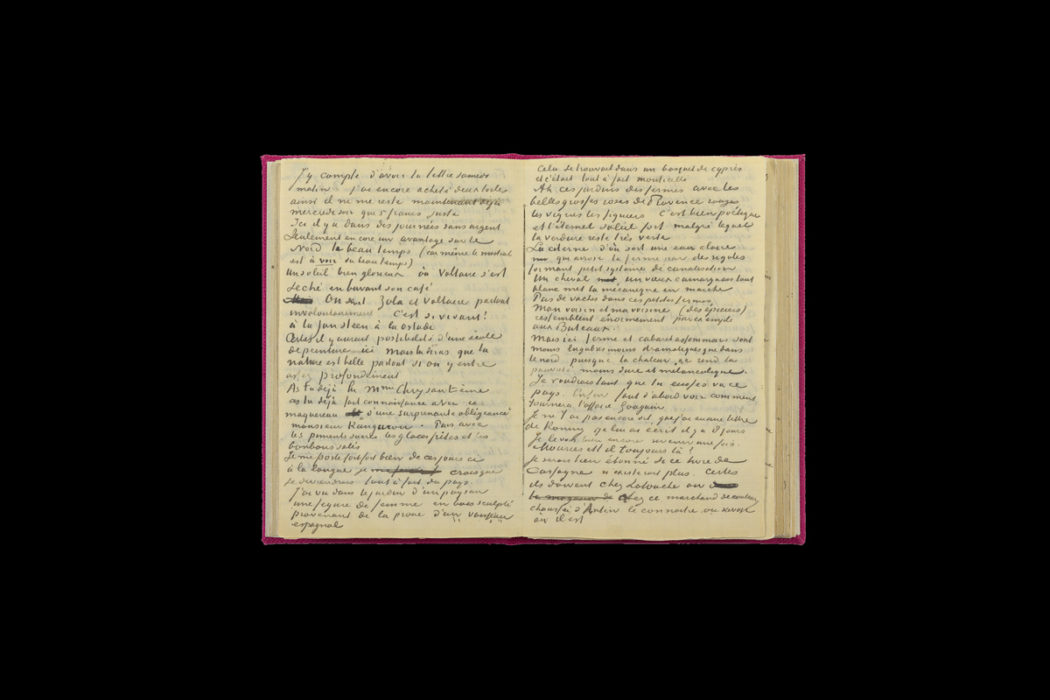 J'y compte d'avoir ta lettre samedi
matin j'ai encore acheté deux toiles
ainsi il ne me reste maintenant déjà
mercredi soir que 5 francs juste
Ici il y a dans des journées sans argent
Seulement encore un avantage sur le
Nord le beau temps (car même le mistral
est à voir du beau temps)
Un soleil bien glorieux où Voltaire s'est
séché en buvant son café
On sent Zola et Voltaire partout
involontairement c'est si vivant!
à la Jan Steen à la Ostade
Certes il y aurait possibilité d'une école
de peinture ici mais tu diras que la
nature est belle partout si on y entre
assez profondément
As tu déjà lu Mme Chrysantème
as tu déjà fait connaissance avec ce
maquereau d'une surprenante obligeance
monsieur Kangourou. Puis avec
les piments sucrés les glaces frites et les
bonbons salés
Je me porte fort fort bien de ces jours ci
à la longue je crois que
je deviendrai tout à fait du pays.
j'ai vu dans le jardin d'un paysan
une figure de femme en bois sculpté
provenant de la proue d'un vaisseau
espagnol
Cela se trouvait dans un bosquet de cyprès
et c'était tout à fait monticelli
Ah ces jardins des fermes avec les
belles grosses roses de Provence rouges
les vignes les figuiers c'est bien poétique
et l'éternel soleil fort malgré lequel
la verdure reste très verte
La citerne d'où sort une eau claire
qui arrose la ferme par des rigoles
formant petit système de canalisation
Un cheval un vieux camarguais tout
blanc met la mécanique en marche
Pas de vaches dans ces petites fermes
Mon voisin et ma voisine (des épiciers)
ressemblent énormément par exemple
aux Buteaux.
Mais ici ferme et cabaret assommoir sont
moins lugubres moins dramatiques que dans
le nord puisque la chaleur etc rend la
pauvreté moins dure et mélancolique.
Je voudrais tant que tu eusses vu ce
pays. Enfin faut d'abord voir comment
tournera l'affaire Gauguin
Je ne t'ai pas encore dit que j'ai eu une lettre
de Koning je lui ai écrit il y a 8 jours
Je le vois bien encore revenir une fois.
Mourier est il toujours là?
Je serais bien étonné de ce livre de
Cassagne n'existerait plus. Certes
ils doivent chez Latouche ou
chez ce marchand de couleurs
chaussée d'Antin le connaitre ou savoir
où il est